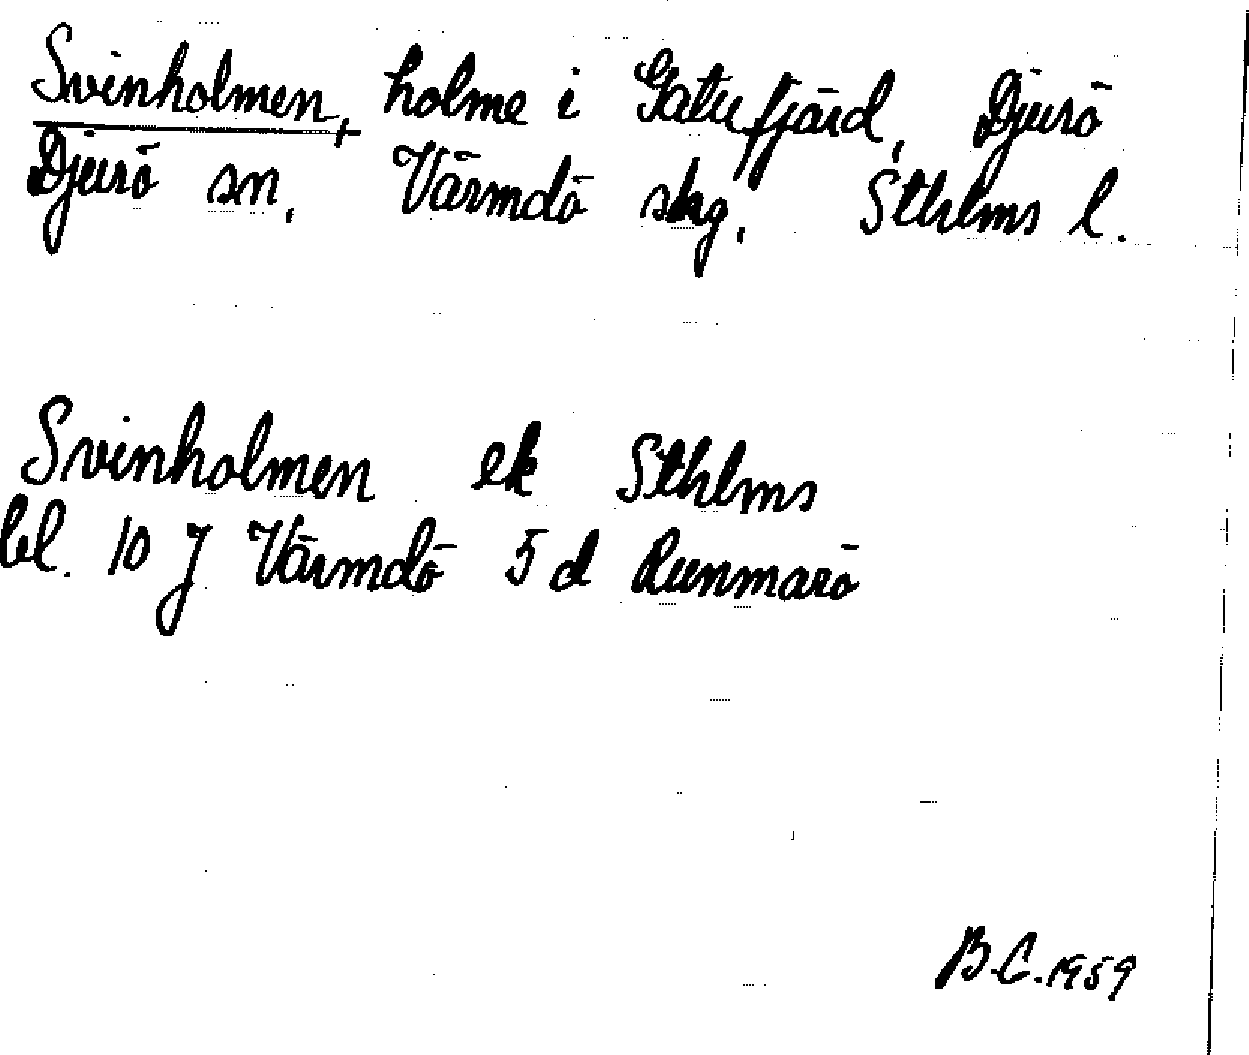 Svinholmen, holme i Gatufjärd, Djurö
Djurö sn, Värmdö skg, Sthlms l.
Svinholmen ek Sthlms
bl. 10 J Värmdö 5 d Runmarö
B.C. 1959